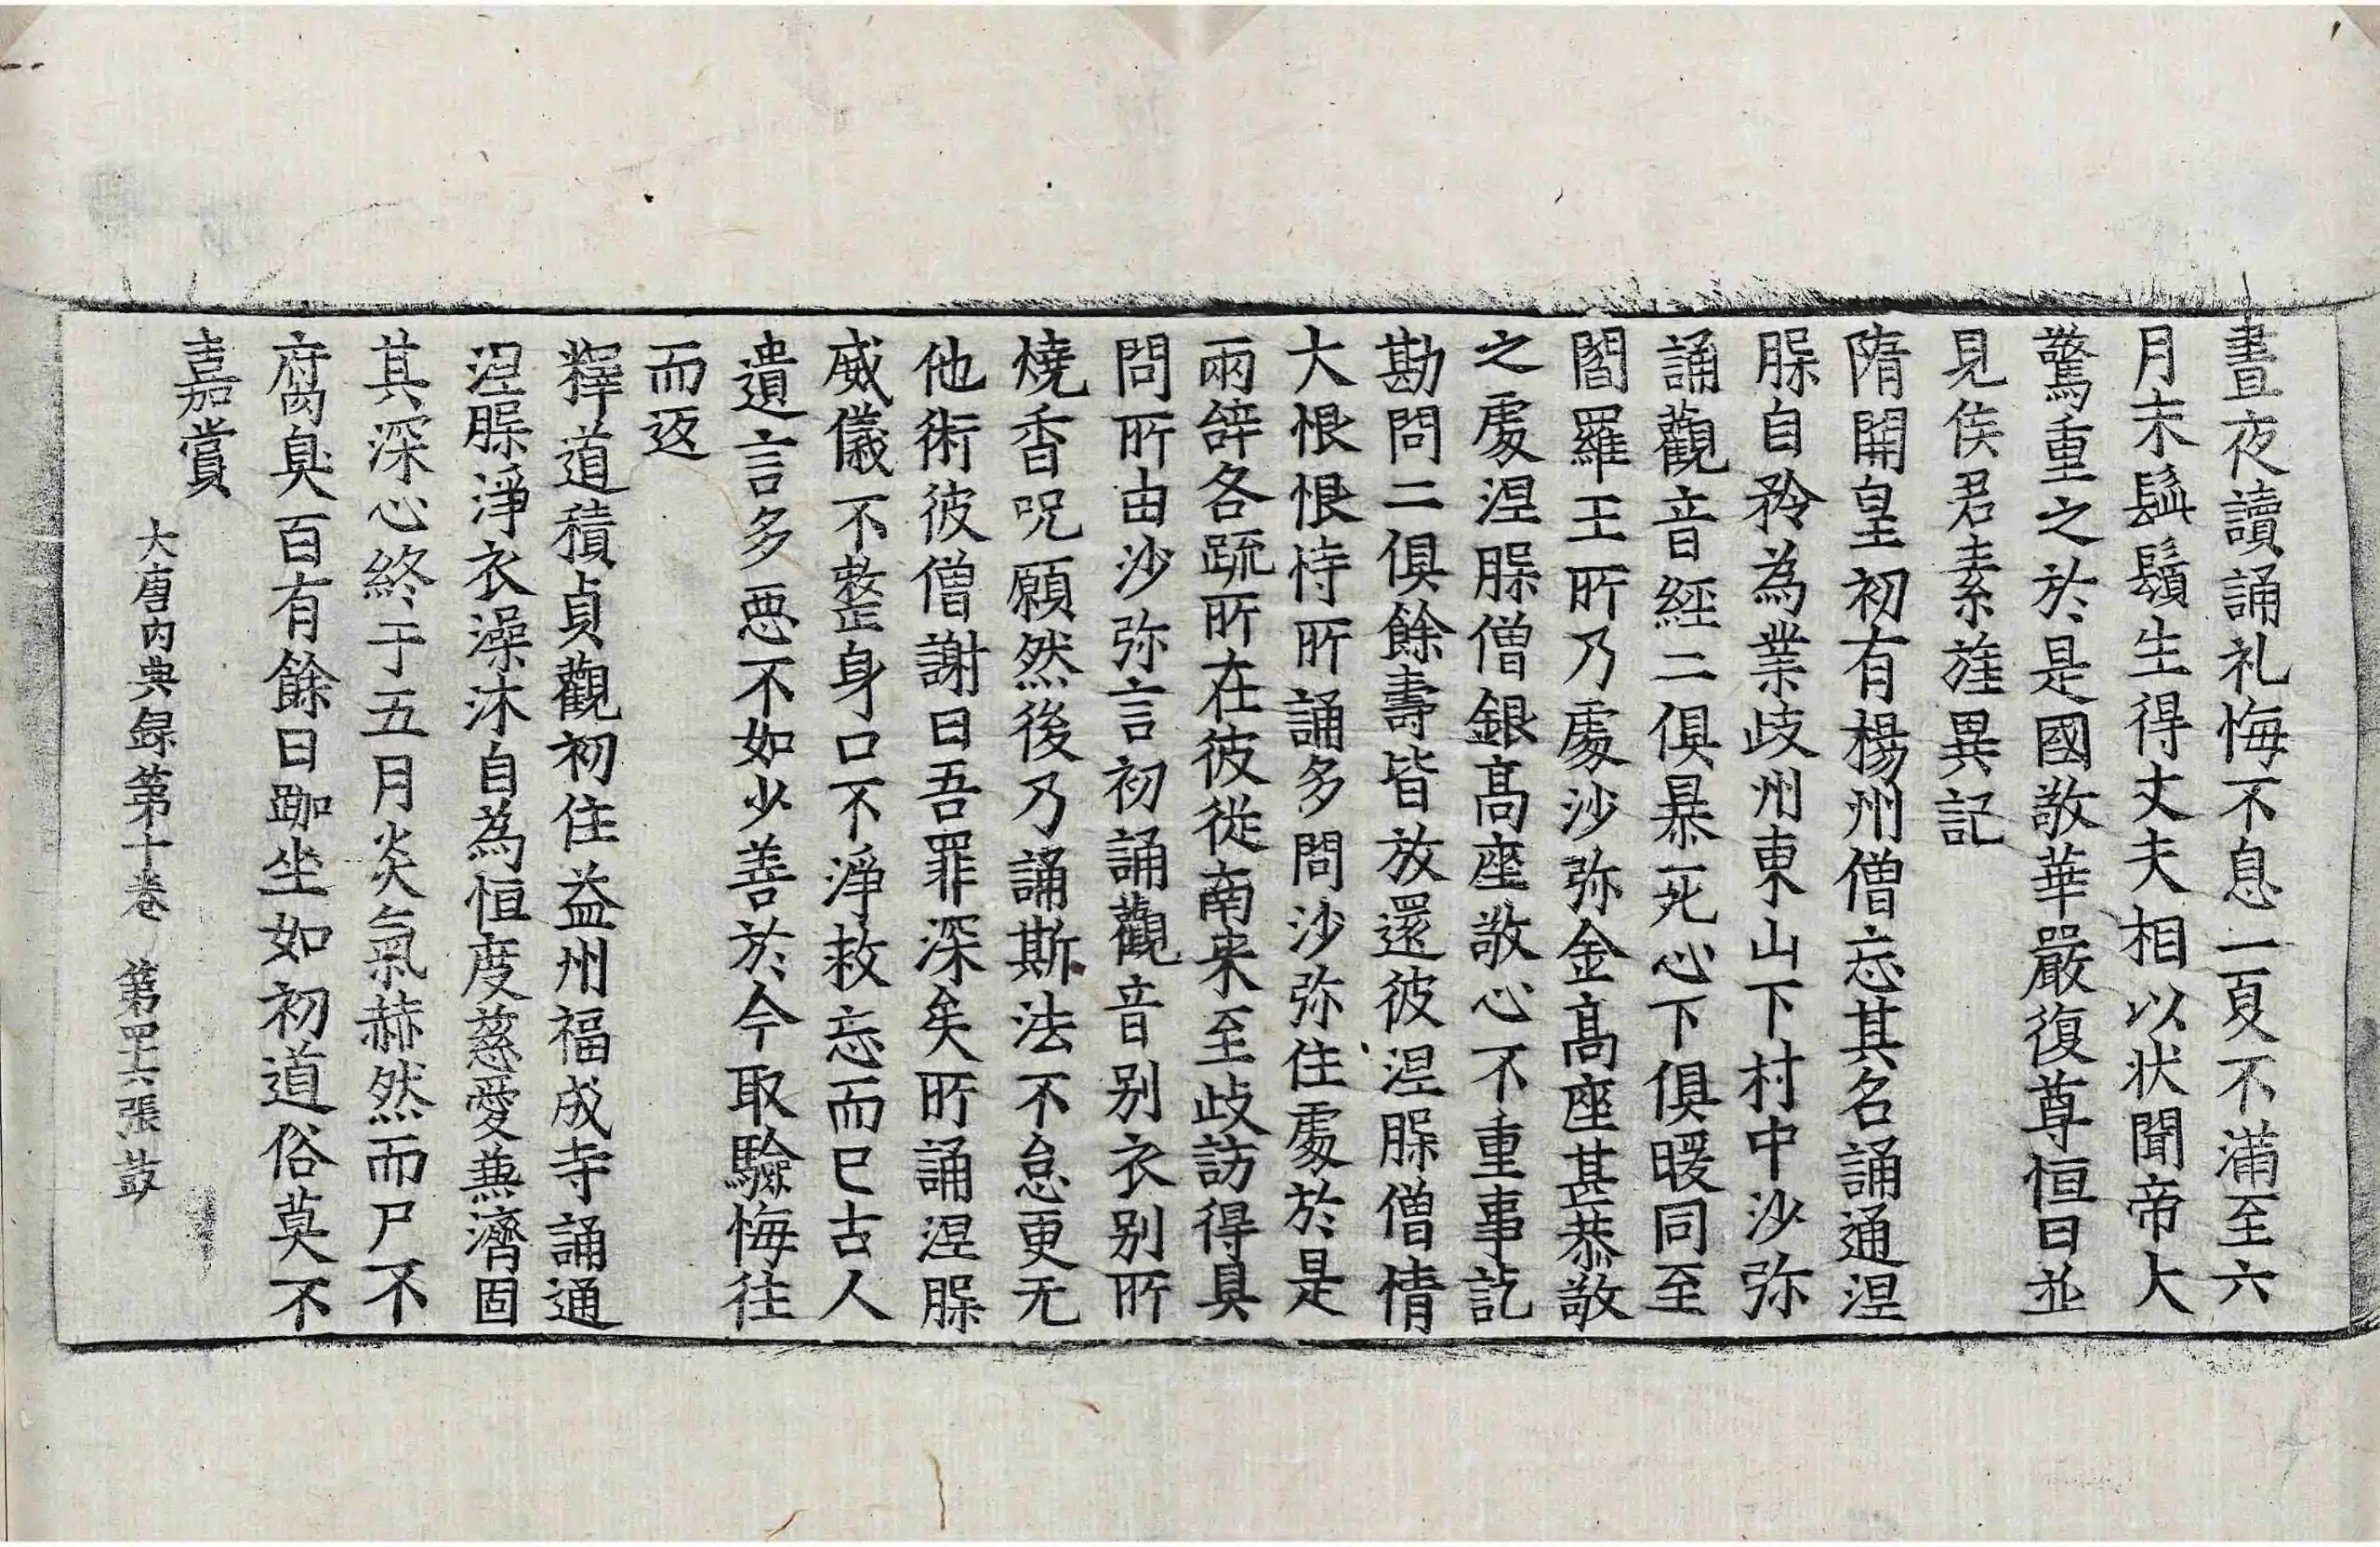 晝夜讀誦礼悔不息一夏不滿至六
月末鬚鬢生得丈夫相以狀聞帝大
驚重之於是國敬華嚴復尊恒日並
見侯君素旌異記
隋開皇初有楊州僧忘其名誦通涅
槃自矜為業歧州東山下村中沙弥
誦觀音經二俱暴死心下俱暖同至
閻羅王所乃處沙弥金髙座甚恭敬
之處涅槃僧銀髙座敬心不重事訖
勘問二俱餘壽皆放還彼涅槃僧情
大恨恨恃所誦多問沙弥住處於是
兩辝各䟽所在彼從南来至歧訪得具
問所由沙弥言初誦觀音别衣别所
燒香呪願然後乃誦斯法不怠更无
他術彼僧謝曰吾罪深矣所誦涅槃
威儀不整身口不淨救忘而已古人
遺言多惡不如少善於今取驗悔往
而返
釋道積貞觀初住益州福成寺誦通
涅槃淨衣澡沐自為恒度慈愛兼濟固
其深心終于五月炎氣赫然而尸不
腐臭百有餘日跏坐如初道俗莫不
嘉賞
大唐內典録第十卷 第四十六張 鼓